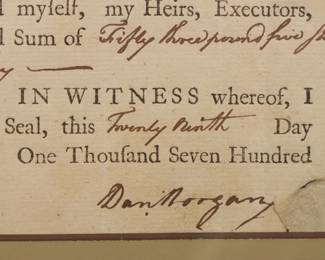 myſelf, my Heirs, Executors,
Sum of Fifty three pound five
IN WITNESS whereof, I
Seal, this Twenty Ninth Day
One Thouſand Seven Hundred
Dan Morgan